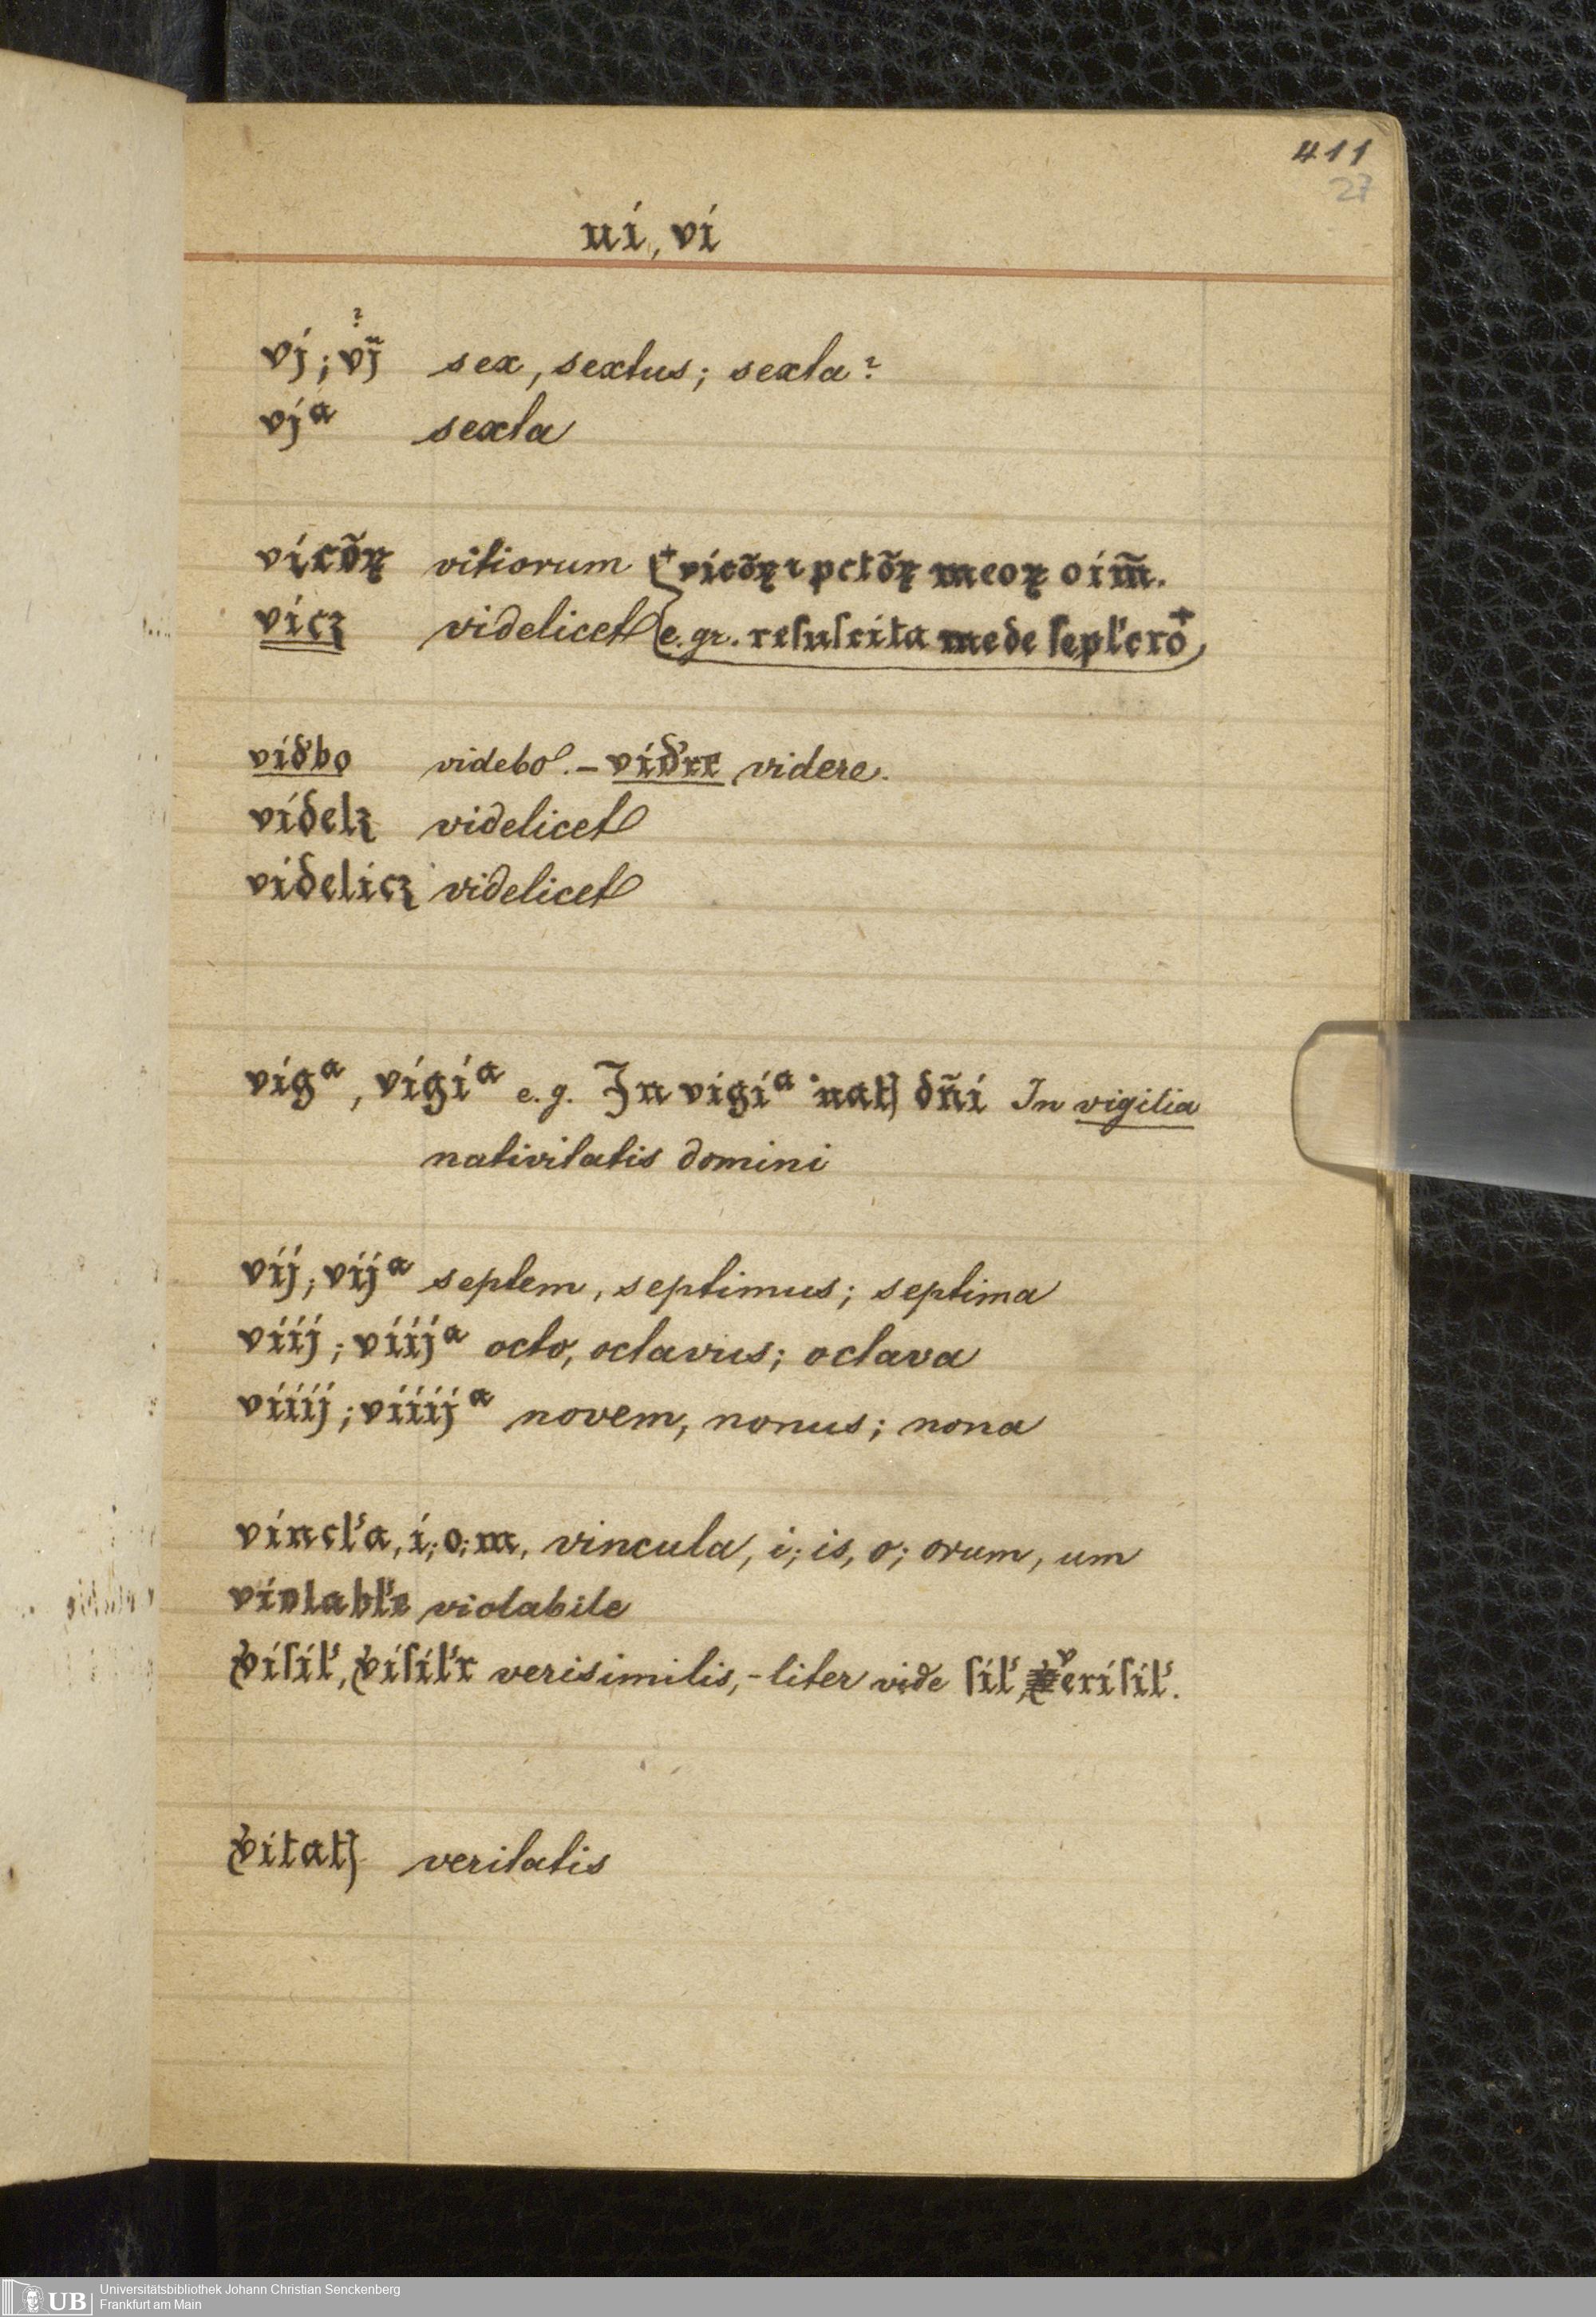 411
27
ui, vi
?
vj; vj̃ sex, sextus; sexta?
vjᵃ sexta
vicõꝝ vitiorum (+vicõꝝ ⁊ pctõꝝ meoꝝ oim̃.
vicꝫ videlicet e. gr. resuscita me de sepl'cro+)
vid'bo videbo. – vid're videre.
videlꝫ videlicet
videlicꝫ videlicet
vigᵃ, vigiᵃ e. g. In vigiᵃ natꝭ dñi In vigilia
nativitatis domini
vij; vijᵃ septem, septimus; septima
viij; viijᵃ octo, octavus; octava
viiij; viiijᵃ novem, nonus; nona
vincl'a, i; o; m, vincula, i; is, o; orum, um
violabl'e violabile
v'isil', v'isil'r verisimilis, -liter vide sil', verisil'.
v'itatꝭ veritatis
UB Universitätsbibliothek Johann Christian Senckenberg
Frankfurt am Main